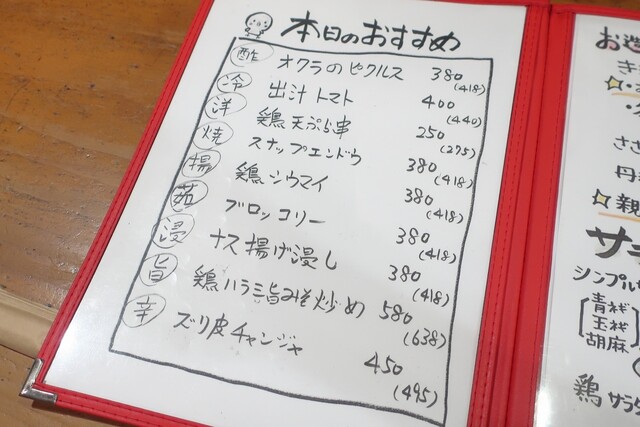 本日のおすすめ
酢 オクラのピクルス 380 (418)
冷 出汁トマト 400 (440)
洋 鶏天ぷら串 250 (275)
焼 スナップエンドウ 380 (418)
揚 鶏シウマイ 380 (418)
茹 ブロッコリー 380 (418)
浸 ナス揚げ浸し 380 (418)
旨 鶏ハラミ旨みそ炒め 580 (638)
辛 ズリ皮チャンジャ 450 (495)
お造
ささ
丹
☆親
サラ
シンプルサ
青ネギ
玉ネギ
胡麻
鶏サラダ